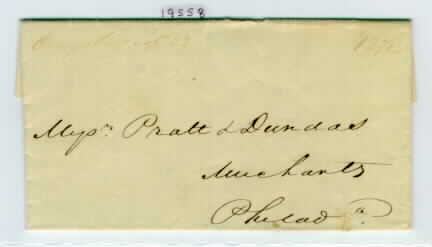 19558
Messrs. Pratt & Dundas
Merchants
Philada.